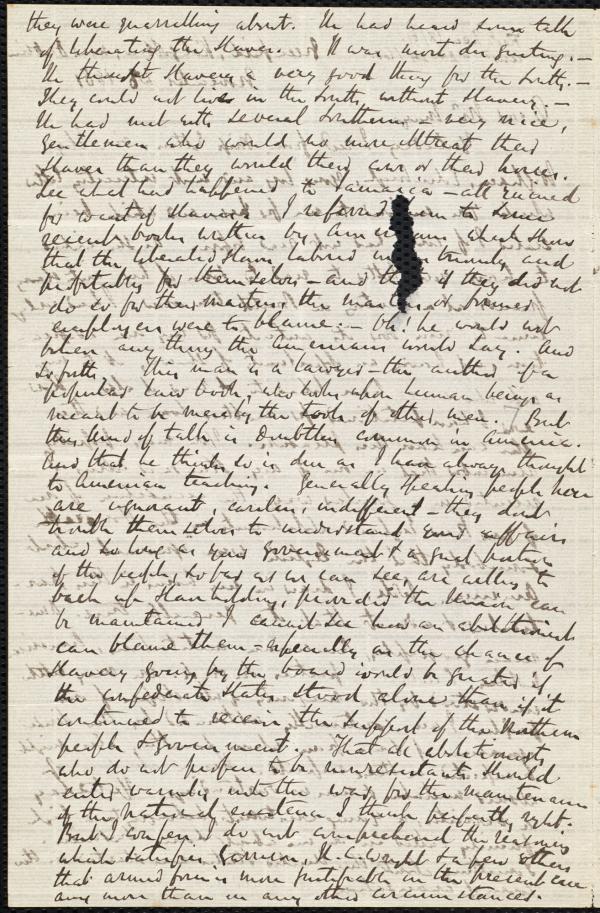 they were quarrelling about. He had heard some talk
of liberating the slaves. It was most disgusting. —
He thought slavery a very good thing for the South. —
They could not live in the South, without slavery. —
He had met with several Southern very nice,
gentlemen who would no more illtreat their
slaves than they would their cows or their horses.
See what had happened to Jamaica — all ruined
for want of slavery. I referred him to some
recent books written by Americans which shows
that the liberated slaves labored and
profitably for themselves — and if they did not
do so for their masters, the masters or former
employers were to blame. — Oh! he would not
believe any thing the Americans would say. And
so forth. This man is a lawyer — the author of a
popular law book, who looks upon human beings as
meant to be merely the tools of other men. But
this kind of talk is doubtless common in America.
And that he thinks so is due as I have always thought
to American teaching. Generally speaking people here
are ignorant, careless, indifferent — they don't
trouble themselves to understand your affairs
and so long as your government & a great portion
of the people, so far as we can see, are willing to
back up slaveholding, provided the Union can
be maintained I cannot see how an abolitionist
can blame them — especially as the chance of
slavery going by the board would be greater if
the confederate States stood alone than if it
continued to receive the support of the Northern
people & government. That all abolitionists
who do not profess to be nonresistants should
enter warmly into the war for the maintenance
of the national existence I think perfectly right.
But I confess I do not comprehend the reasons
which satisfies Garrison, H. C. Wright & a few others
that armed force is more justifiable in the present case
any more than in any other circumstances.